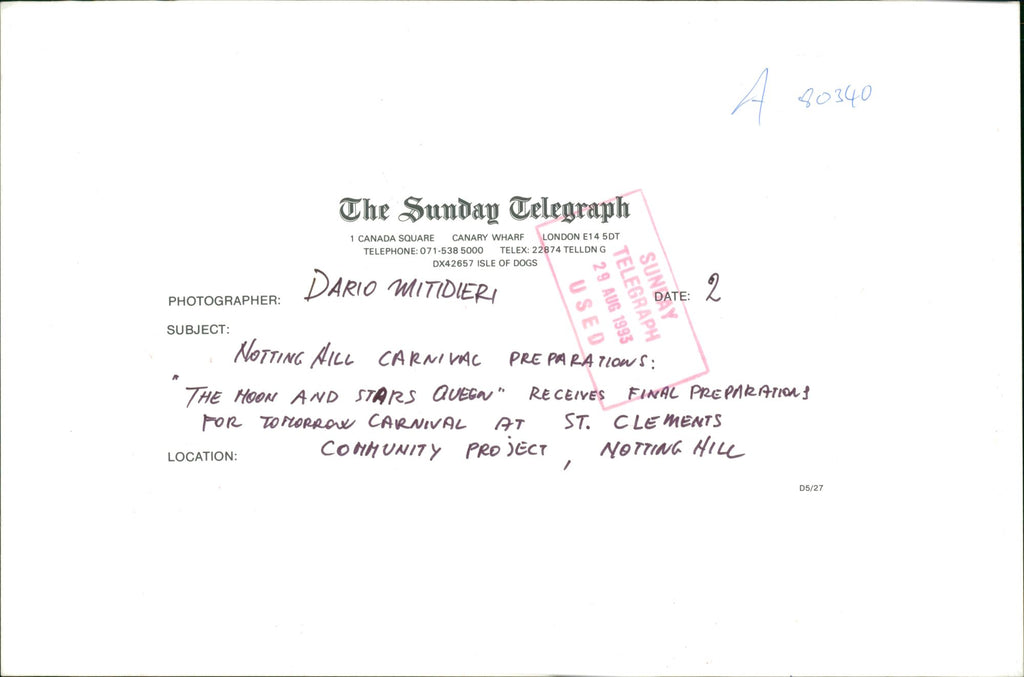 A 80340
The Sunday Telegraph
1 CANADA SQUARE CANARY WHARF LONDON E14 5DT
TELEPHONE: 071-538 5000 TELEX: 22874 TELLDN G
DX42657 ISLE OF DOGS
SUNDAY
TELEGRAPH
29 AUG 1993
USED
PHOTOGRAPHER: DARIO MITIDIERI DATE: 2
SUBJECT:
NOTTING HILL CARNIVAL PREPARATIONS:
"THE MOON AND STARS QUEEN" RECEIVES FINAL PREPARATIONS
FOR TOMORROW CARNIVAL AT ST. CLEMENTS
LOCATION: COMMUNITY PROJECT, NOTTING HILL
D5/27